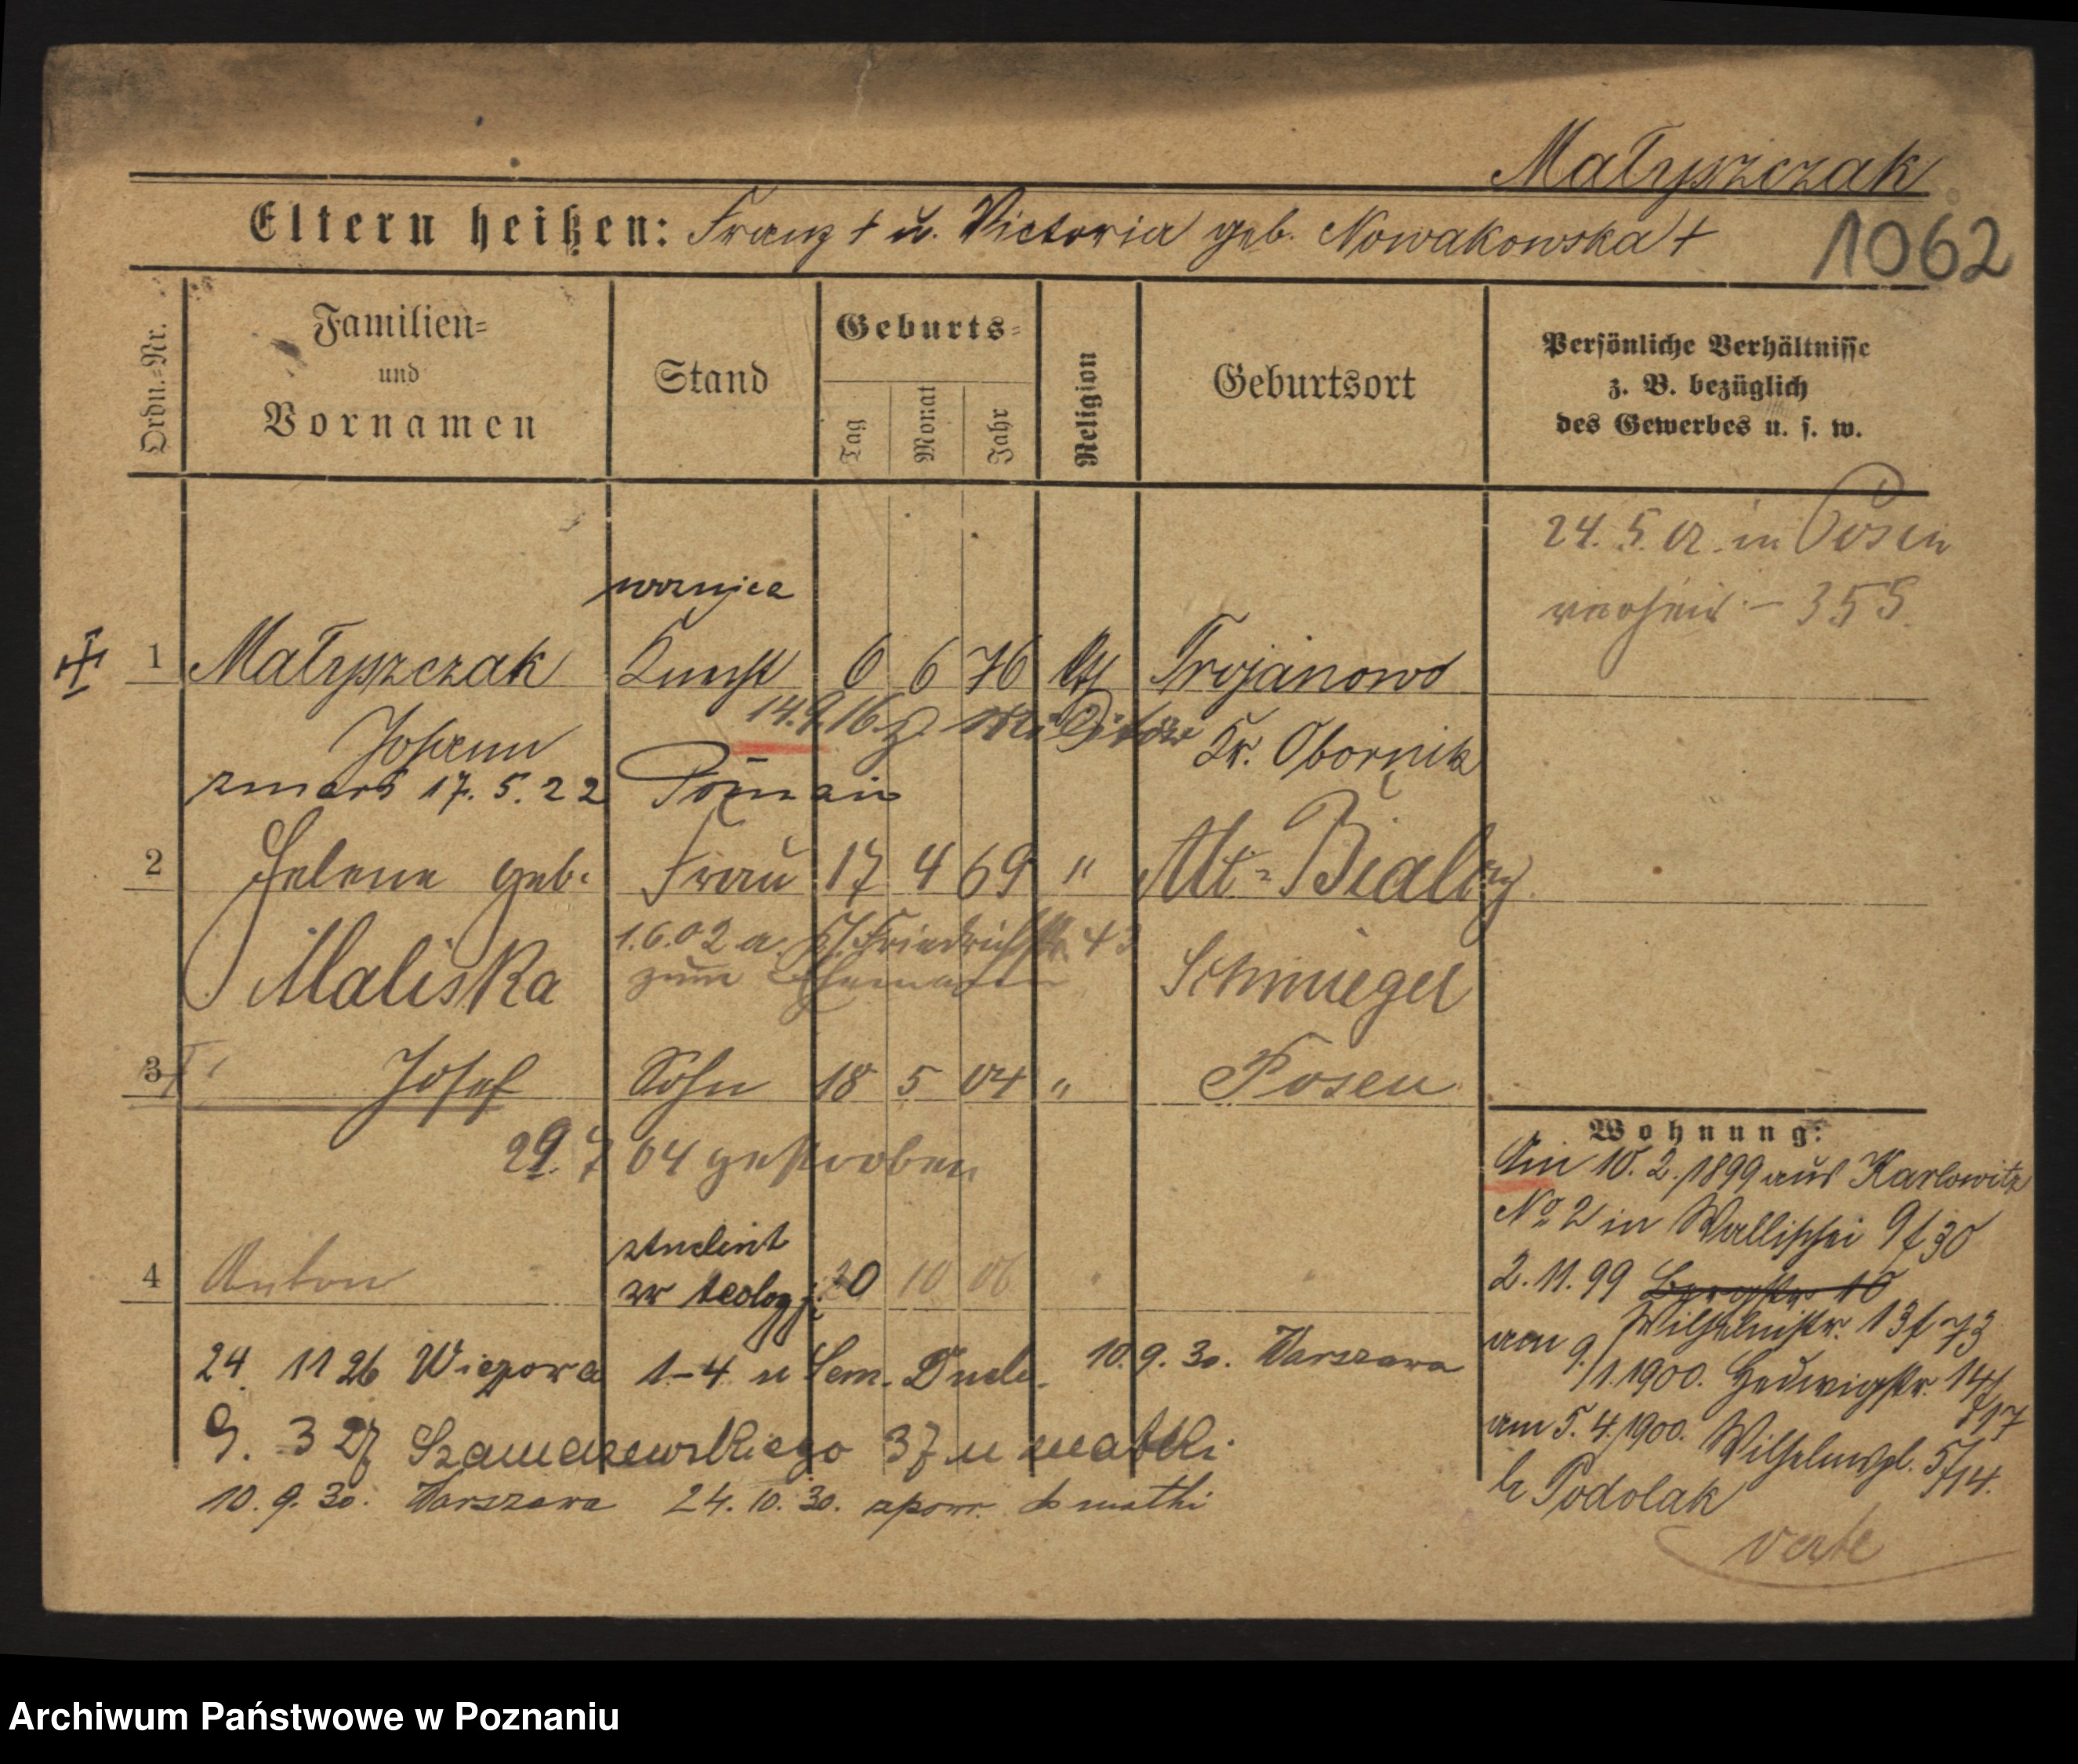 Małyszczak
Eltern heißen: Franz † u. Victoria geb. Nowakowska †
1062
Ordn.-Nr.
Familien- und Vornamen
Stand
Geburts-
Tag
Monat
Jahr
Religion
Geburtsort
Persönliche Verhältnisse
z. B. bezüglich
des Gewerbes u. s. w.
24. 5. 02. in Posen
verheir. - 355.
woznica
1 Małyszczak 6 6 76 kth Trojanowo
Johann 14.9.16 z. Militär Kr. Obornik
zmarł 17. 5. 22 Poznań
2 Helene geb. Frau 17 4 69 " Alt-Bialcz
1.6.02 a. Friedrichstr. 43
Maliska zum Ehemann Schmiegel
3 Josef Sohn 18 5 04 " Posen
29. 7 04 gestorben
student
4 Anton św teologji 20 10 06 " "
24 11 26 Wieżowa 1-4 u Sem. Duch. 10. 9. 30. Warszawa
9. 3 27 Szamarzewskiego 37 u matki
10. 9. 30. Warszawa 24. 10. 30. spowr. do matki
Wohnung:
Am 10. 2. 1899 aus Karlowitz
No 2 in Wallischei 9 f 30
2. 11. 99 Bergstr 10
Wilhelmstr. 13 f 73
am 9/1. 1900. Hedwigstr. 14/
f 17
am 5. 4. 1900. Wilhelmspl. 5/
f 14.
b Podolak
verte
Archiwum Państwowe w Poznaniu